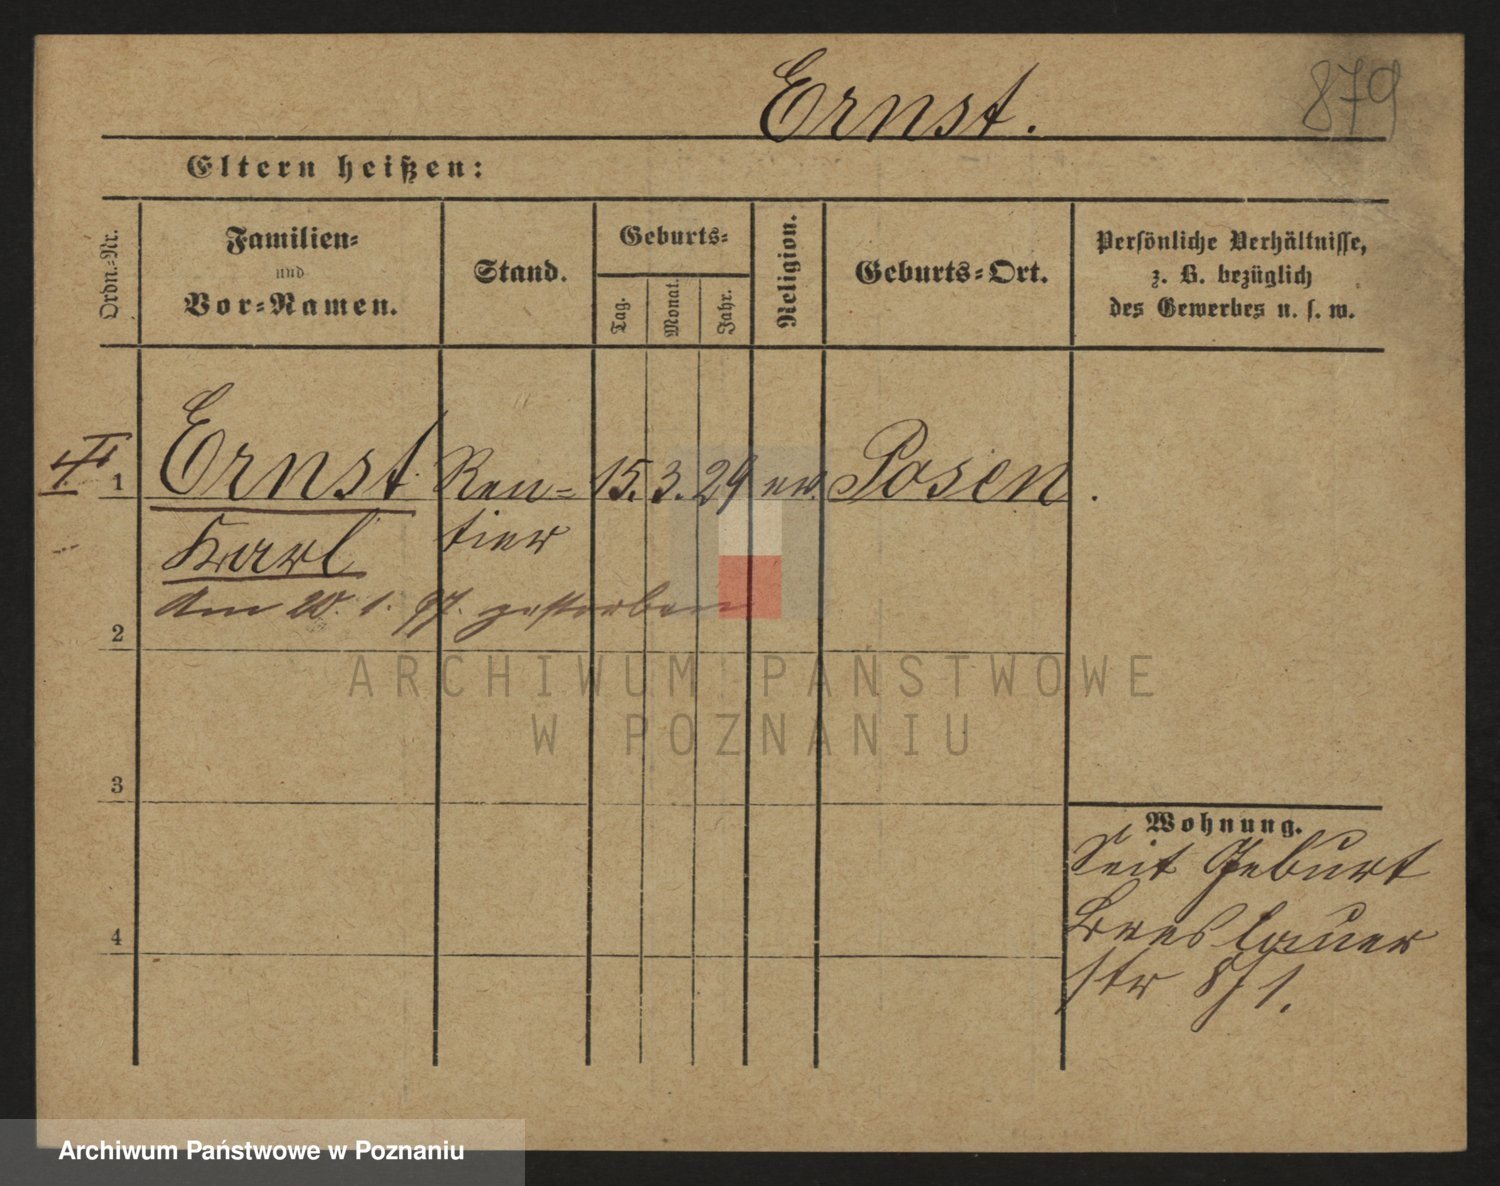 Ernst.
879
Eltern heißen:
Ordn.-Nr.
Familien-
und
Vor-Namen.
Stand.
Geburts-
Tag.
Monat.
Jahr.
Religion.
Geburts-Ort.
Persönliche Verhältnisse,
z. B. bezüglich
des Gewerbes u. s. w.
1 Ernst Ren- 15. 3. 29 ev. Posen.
Karl tier
Am 20. 1. 97. gestorben
2
3
4
Wohnung.
Seit Geburt
Breslauer
str 8/1.
ARCHIWUM PAŃSTWOWE
W POZNANIU
Archiwum Państwowe w Poznaniu